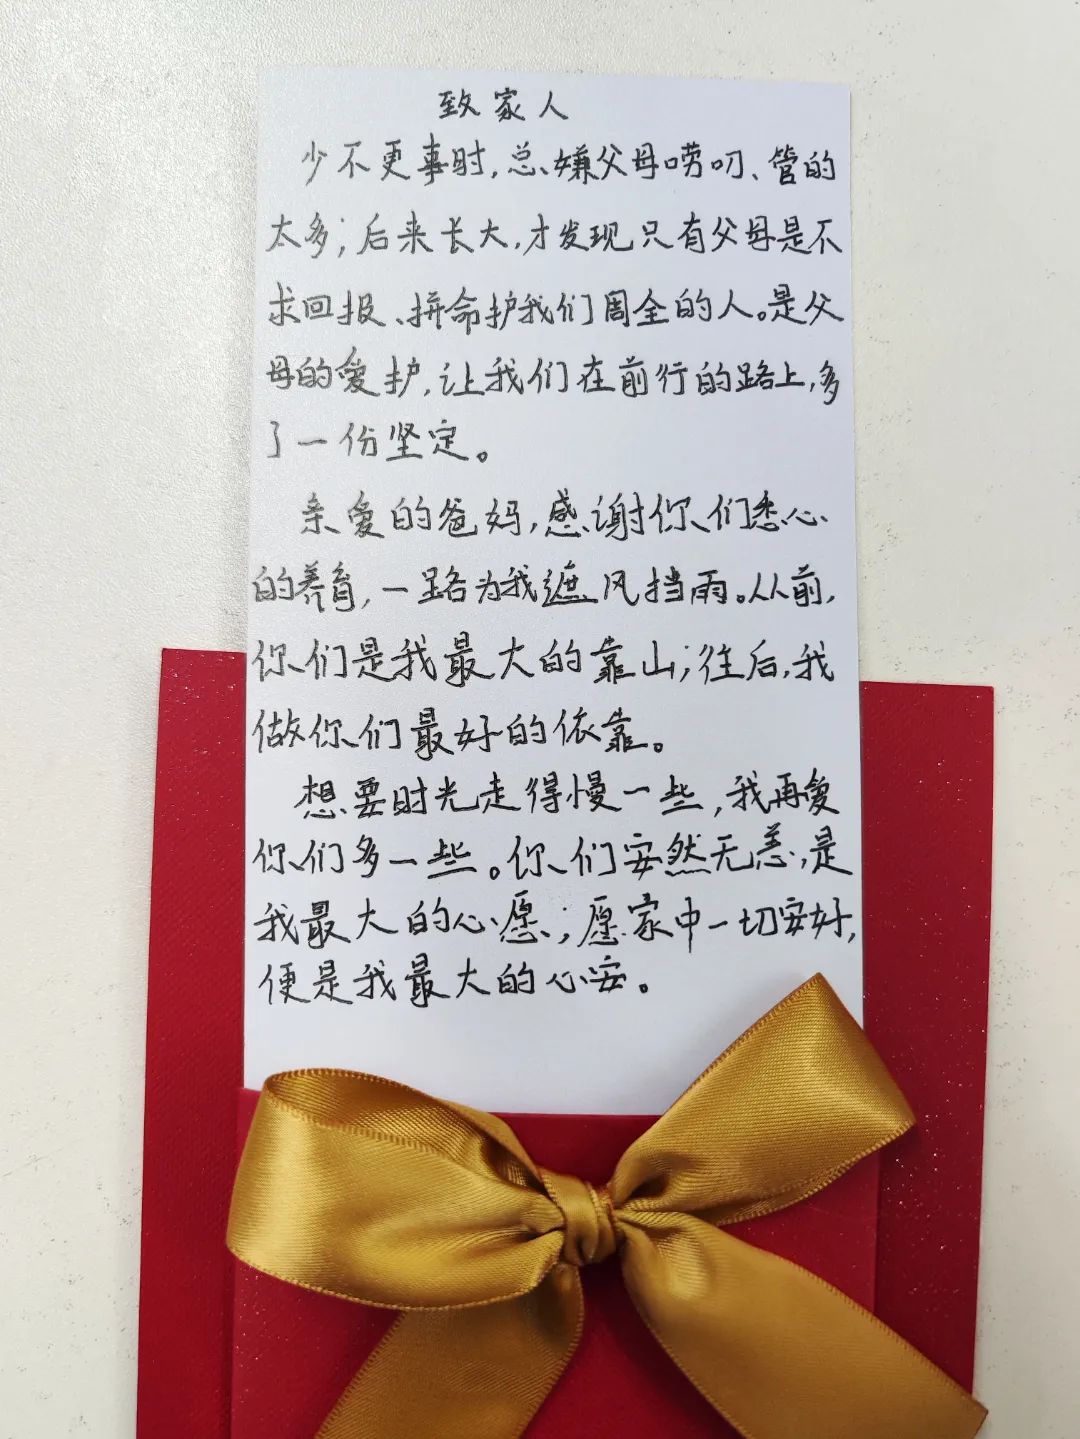 致家人
少不更事时,总嫌父母唠叨、管的
太多;后来长大,才发现只有父母是不
求回报、拼命护我们周全的人。是父
母的爱护,让我们在前行的路上,多
了一份坚定。
亲爱的爸妈,感谢你们悉心
的养育,一路为我遮风挡雨。从前,
你们是我最大的靠山;往后,我
做你们最好的依靠。
想要时光走得慢一些,我再爱
你们多一些。你们安然无恙,是
我最大的心愿;愿家中一切安好,
便是我最大的心安。